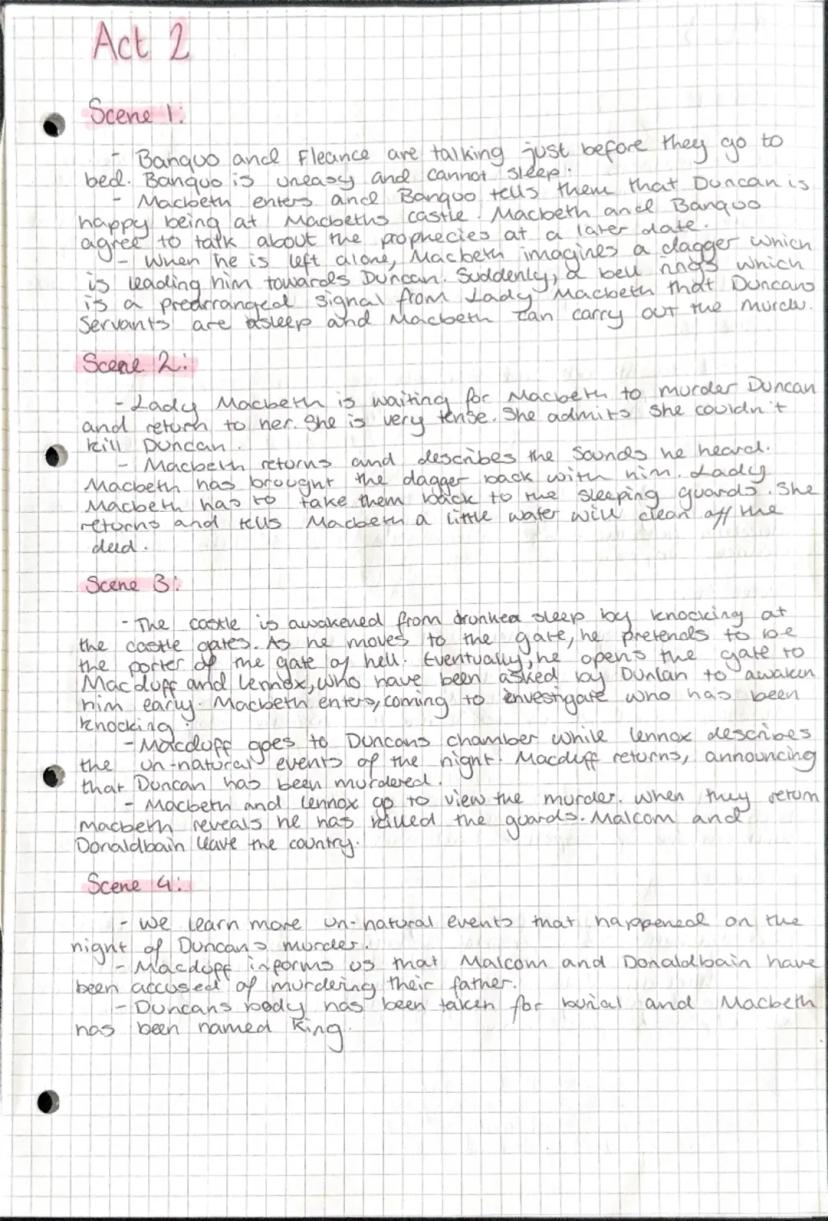 Act 2
Scene 1:
- Banquo and Fleance are talking just before they go to
bed. Banquo is uneasy and cannot sleep.
- Macbeth enters and Banquo tells them that Duncan is
happy being at Macbeths castle. Macbeth and Banquo
agree to talk about the prophecies at a later date.
- When he is left alone, Macbeth imagines a dagger which
is leading him towards Duncan. Suddenly, a bell rings which
is a prearranged signal from Lady Macbeth that Duncans
Servants are asleep and Macbeth can carry out the murder.
Scene 2:
- Lady Macbeth is waiting for Macbeth to murder Duncan
and return to her. She is very tense. She admits she couldn't
kill Duncan.
- Macbeth returns and describes the sounds he heard.
Macbeth has brought the dagger back with him. Lady
Macbeth has to take them back to the sleeping guards. She
returns and tells Macbeth a little water will clean off the
deed.
Scene 3:
- The castle is awakened from drunken sleep by knocking at
the castle gates. As he moves to the gate, he pretends to be
the porter of the gate of hell. Eventually, he opens the gate to
Macduff and Lennox, who have been asked by Dunlan to awaken
him early. Macbeth enters, coming to investigate who has been
knocking.
- Macduff goes to Duncans chamber while lennox describes
the un-natural events of the night. Macduff returns, announcing
that Duncan has been murdered.
- Macbeth and lennox go to view the murder. When they return
macbeth reveals he has killed the guards. Malcom and
Donaldbain leave the country.
Scene 4:
- We learn more un-natural events that happened on the
night of Duncans murder.
- Macduff informs us that Malcom and Donaldbain have
been accused of murdering their father.
- Duncans body has been taken for burial and Macbeth
has been named King.